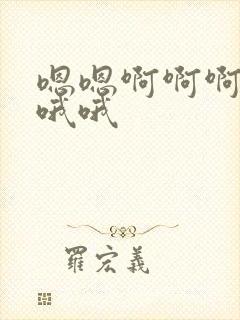 嗯嗯啊啊啊
哦哦
羅宏義